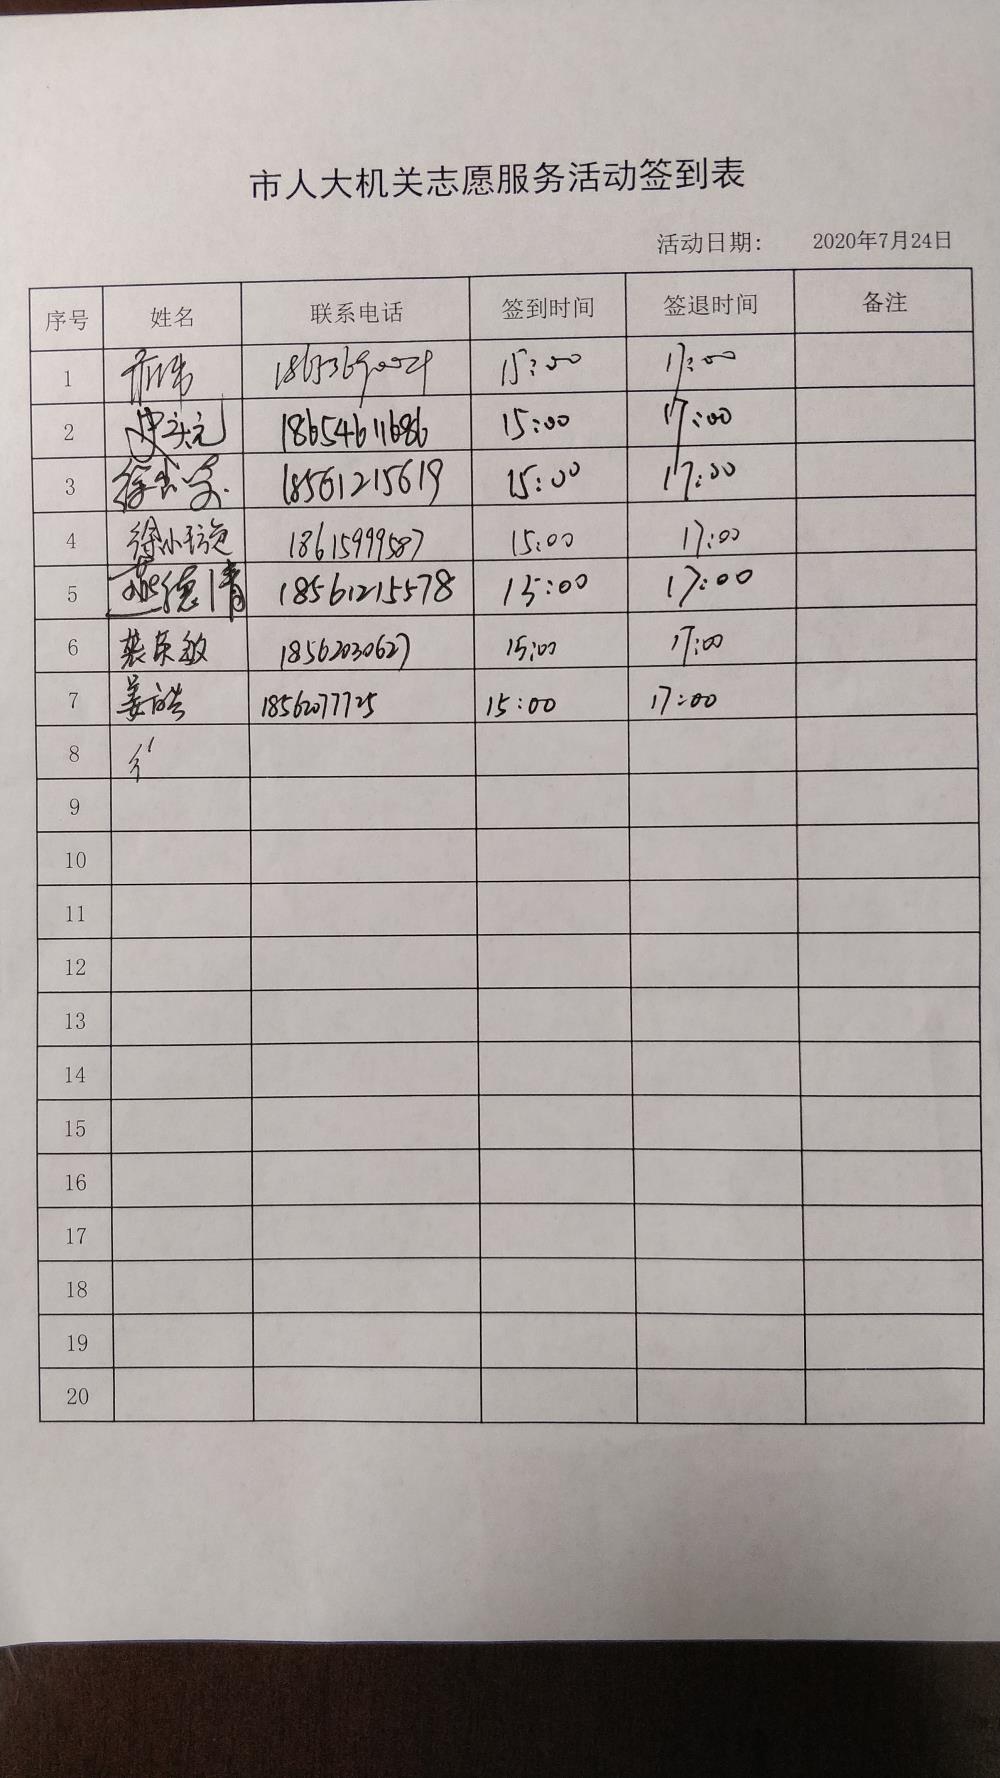 市人大机关志愿服务活动签到表
活动日期: 2020年7月24日
序号 姓名 联系电话 签到时间 签退时间 备注
1 15:00 17:00
2 18654611686 15:00 17:00
3 18561215619 15:00 17:00
4 徐小璇 18615999587 15:00 17:00
5 燕德清 18561215578 15:00 17:00
6 裴英敏 18562030627 15:00 17:00
7 姜皓 18562077725 15:00 17:00
8
9
10
11
12
13
14
15
16
17
18
19
20